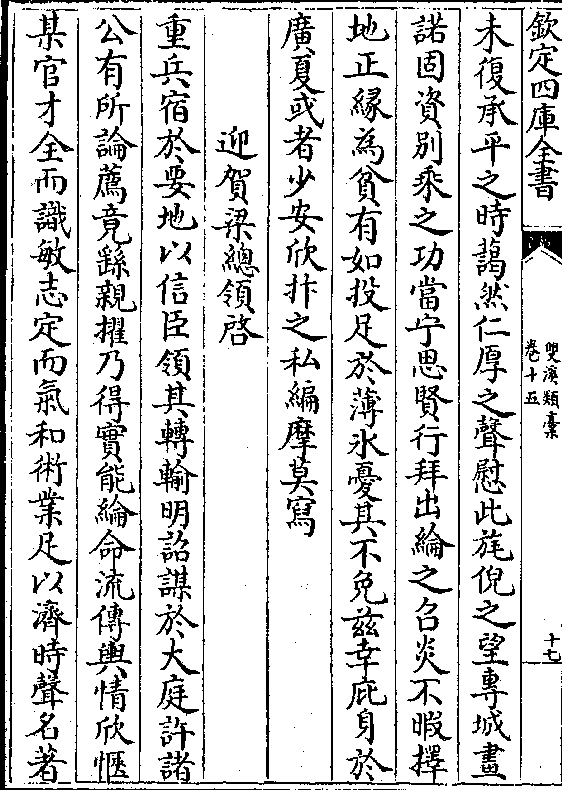 欽定四庫全書
雙溪類槀
卷十五
十七
未復承平之時藹然仁厚之聲慰此旄倪之望專城畫
諾固資別乘之功當宁思賢行拜出綸之召炎不暇擇
地正緣為貧有如投足於薄氷憂其不免兹幸庇身於
廣夏或者少安欣抃之私編摩莫寫
迎賀梁總領啓
重兵宿於要地以信臣領其轉輸明詔謀於大庭許諸
公有所論薦竟繇親擢乃得實能綸命流傳輿情欣愜
某官才全而識敏志定而氣和術業足以濟時聲名著